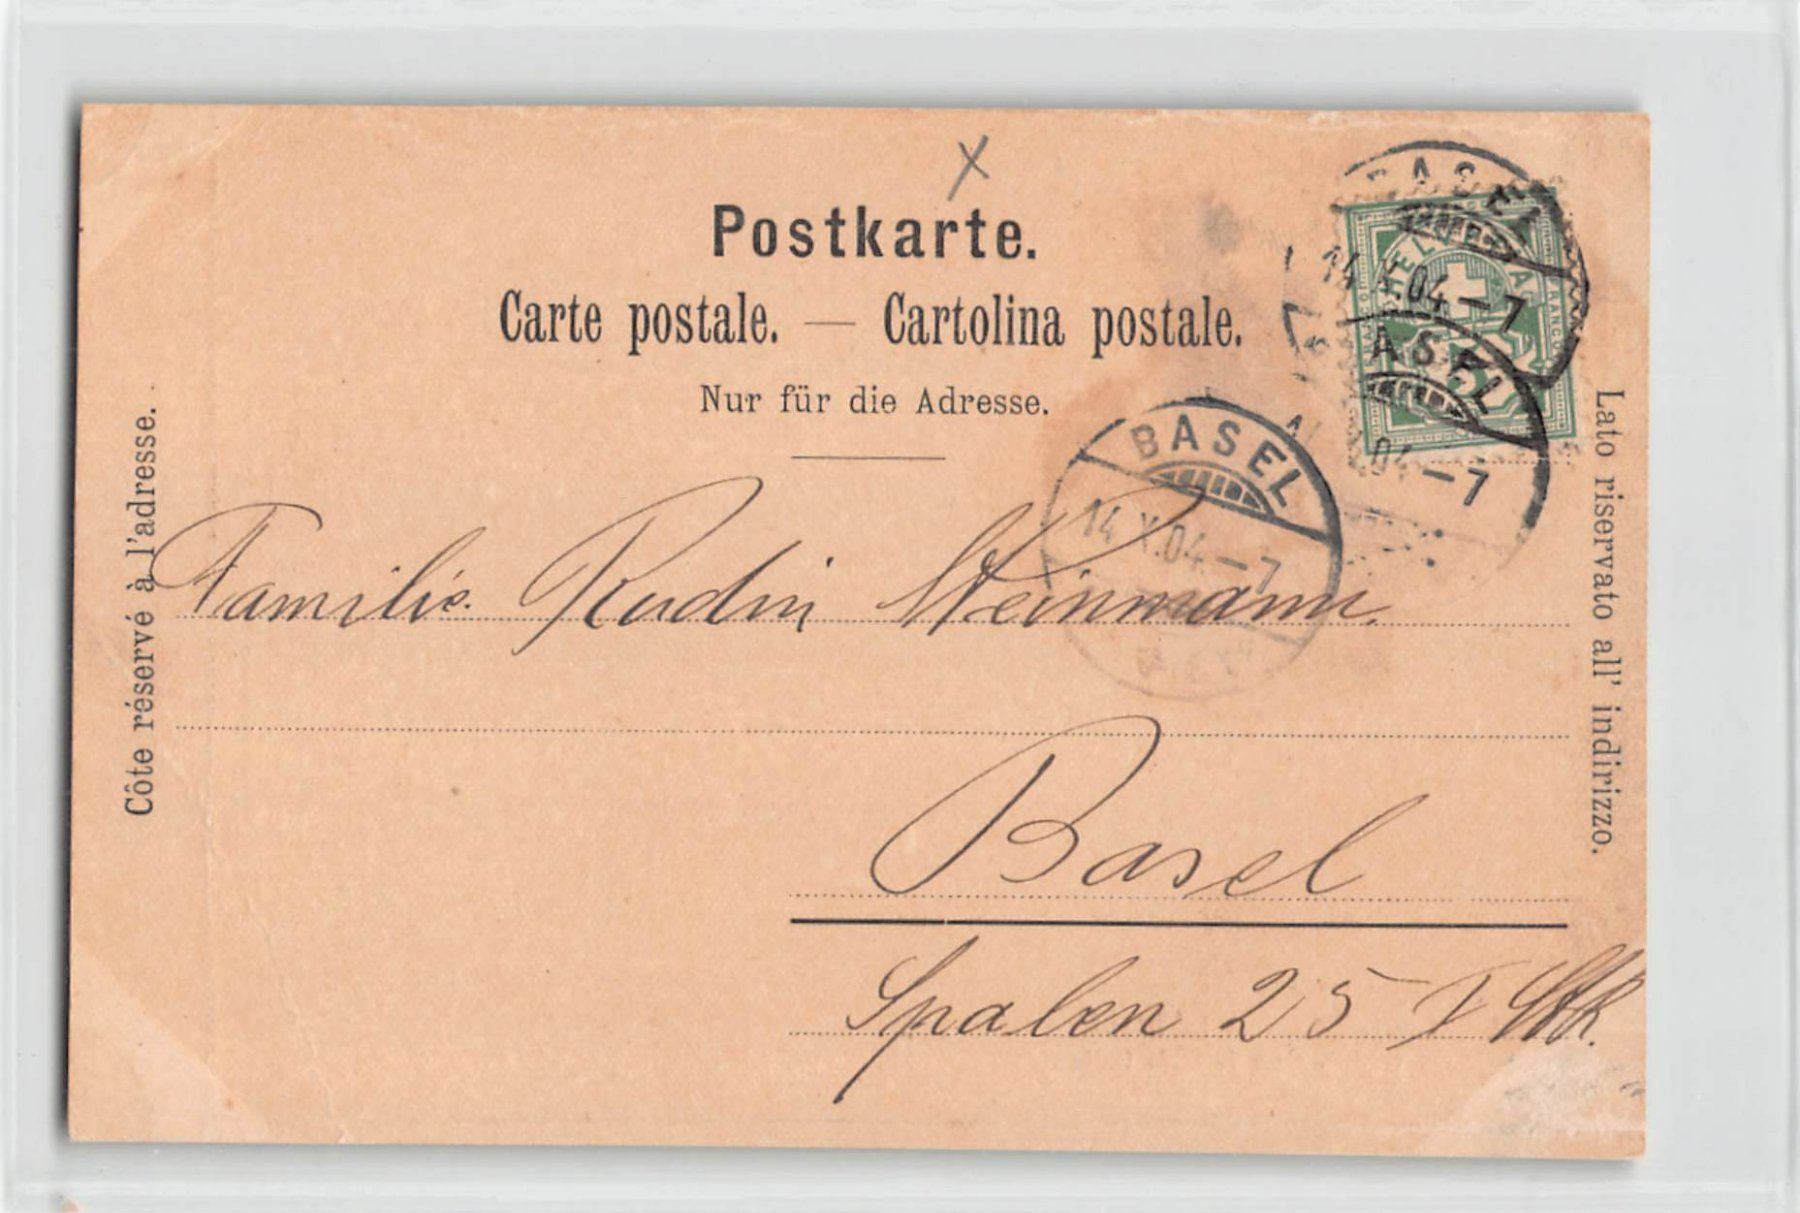 Postkarte.
Carte postale. — Cartolina postale.
Nur für die Adresse.
Côte réservé à l'adresse.
Lato riservato all' indirizzo.
BASEL
14 X.04–7
BASEL
04–7
BASEL
14 X.04–7
Familie Rudin Steinmann.
Basel
Spalen 25 I Stk.